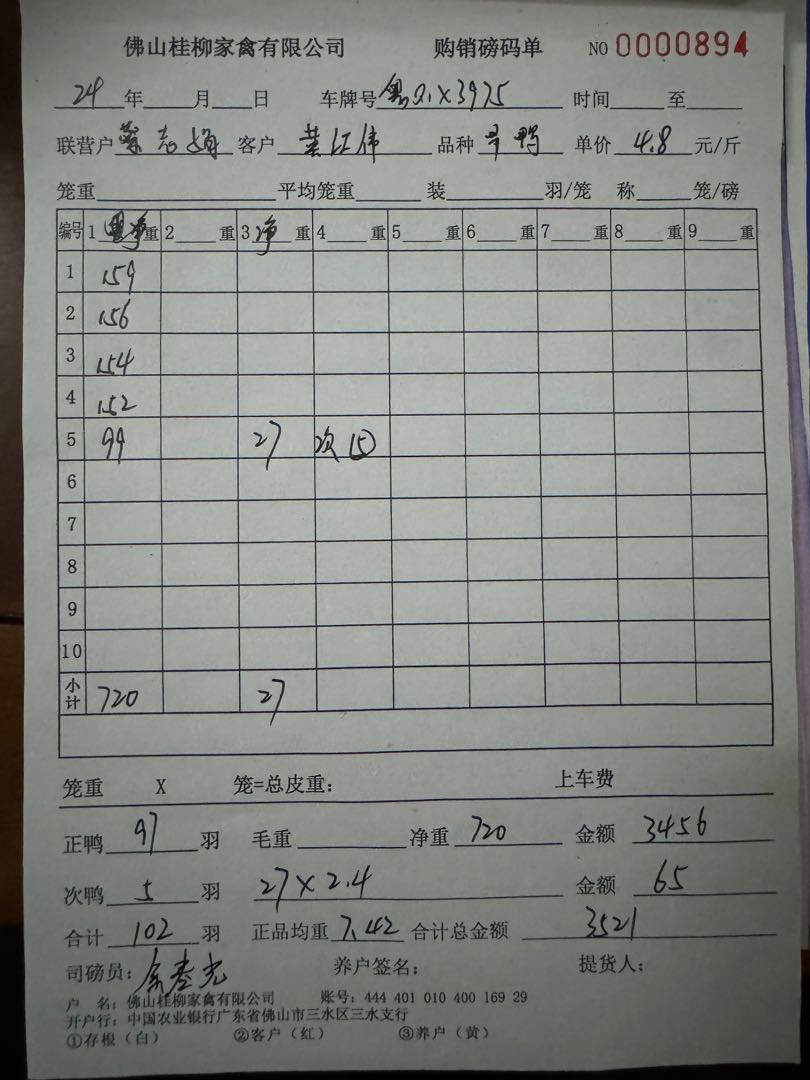 佛山桂柳家禽有限公司 购销磅码单 NO 0000894
24 年 月 日 车牌号 粤 X3975 时间 至
联营户 志 客户 黄江伟 品种 鸭 单价 4.8 元/斤
笼重 平均笼重 装 羽/笼 称 笼/磅
编号 1 净 重 2 重 3 净 重 4 重 5 重 6 重 7 重 8 重 9 重
1 159
2 156
3 154
4 152
5 99 27 次⑤
6
7
8
9
10
小计 720 27
笼重 X 笼=总皮重: 上车费
正鸭 97 羽 毛重 净重 720 金额 3456
次鸭 5 羽 27×2.4 金额 65
合计 102 羽 正品均重 7.42 合计总金额 3521
司磅员: 养户签名: 提货人:
户 名: 佛山桂柳家禽有限公司 账号: 444 401 010 400 169 29
开户行: 中国农业银行广东省佛山市三水区三水支行
①存根(白) ②客户(红) ③养户(黄)